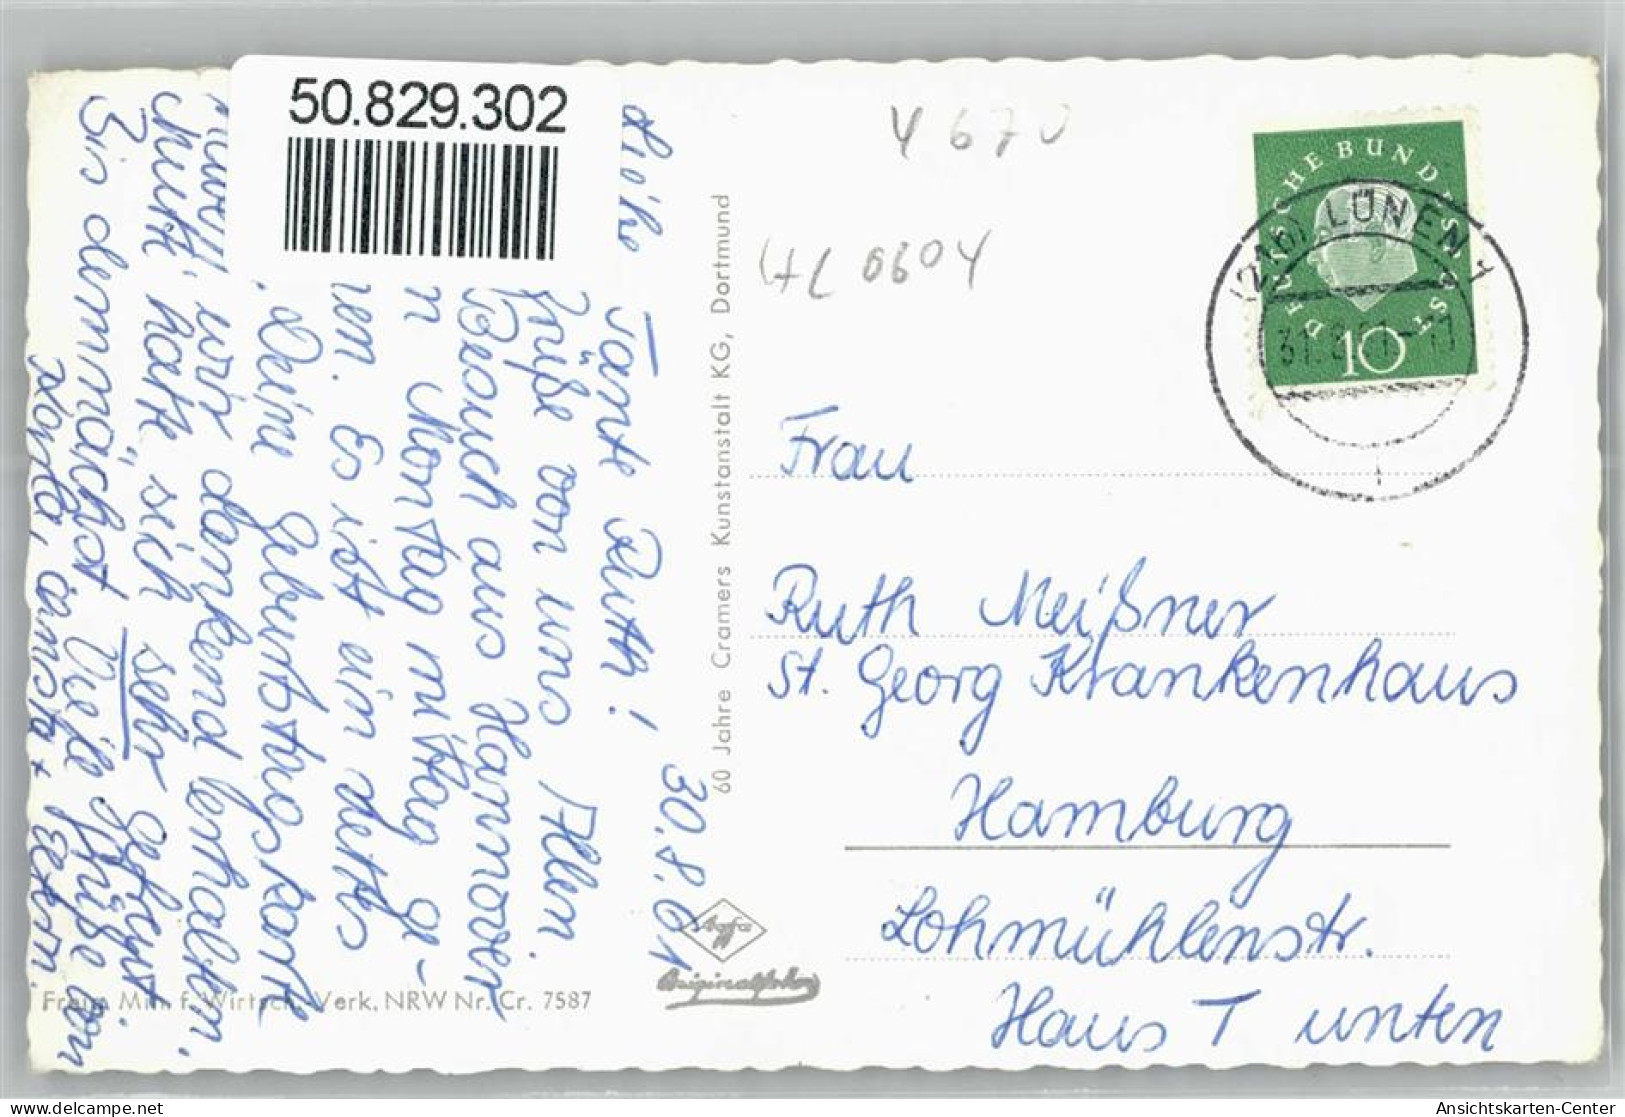 50.829.302
30.8.61
Liebe Tante Ruth!
Grüße von uns Allen.
Besuch aus Hannover
n Montag mittag ge-
men. Es ist ein dettes
. Deine Geburtstagskarte
wir dankend erhalten.
Mutti hatte sich sehr gefreut
Bis demnächst Viele Grüße von
60 Jahre Cramers Kunstanstalt KG, Dortmund
Agfa
Originalfoto
Freig. Min. f. Wirtsch. Verk. NRW Nr. Cr. 7587
4670
HL 0604
DEUTSCHE BUNDESPOST
10
(21b) LÜNEN 1
31.8.61-17
Frau
Ruth Meißner
St. Georg Krankenhaus
Hamburg
Lohmühlenstr.
Haus T unten
Ansichtskarten-Center